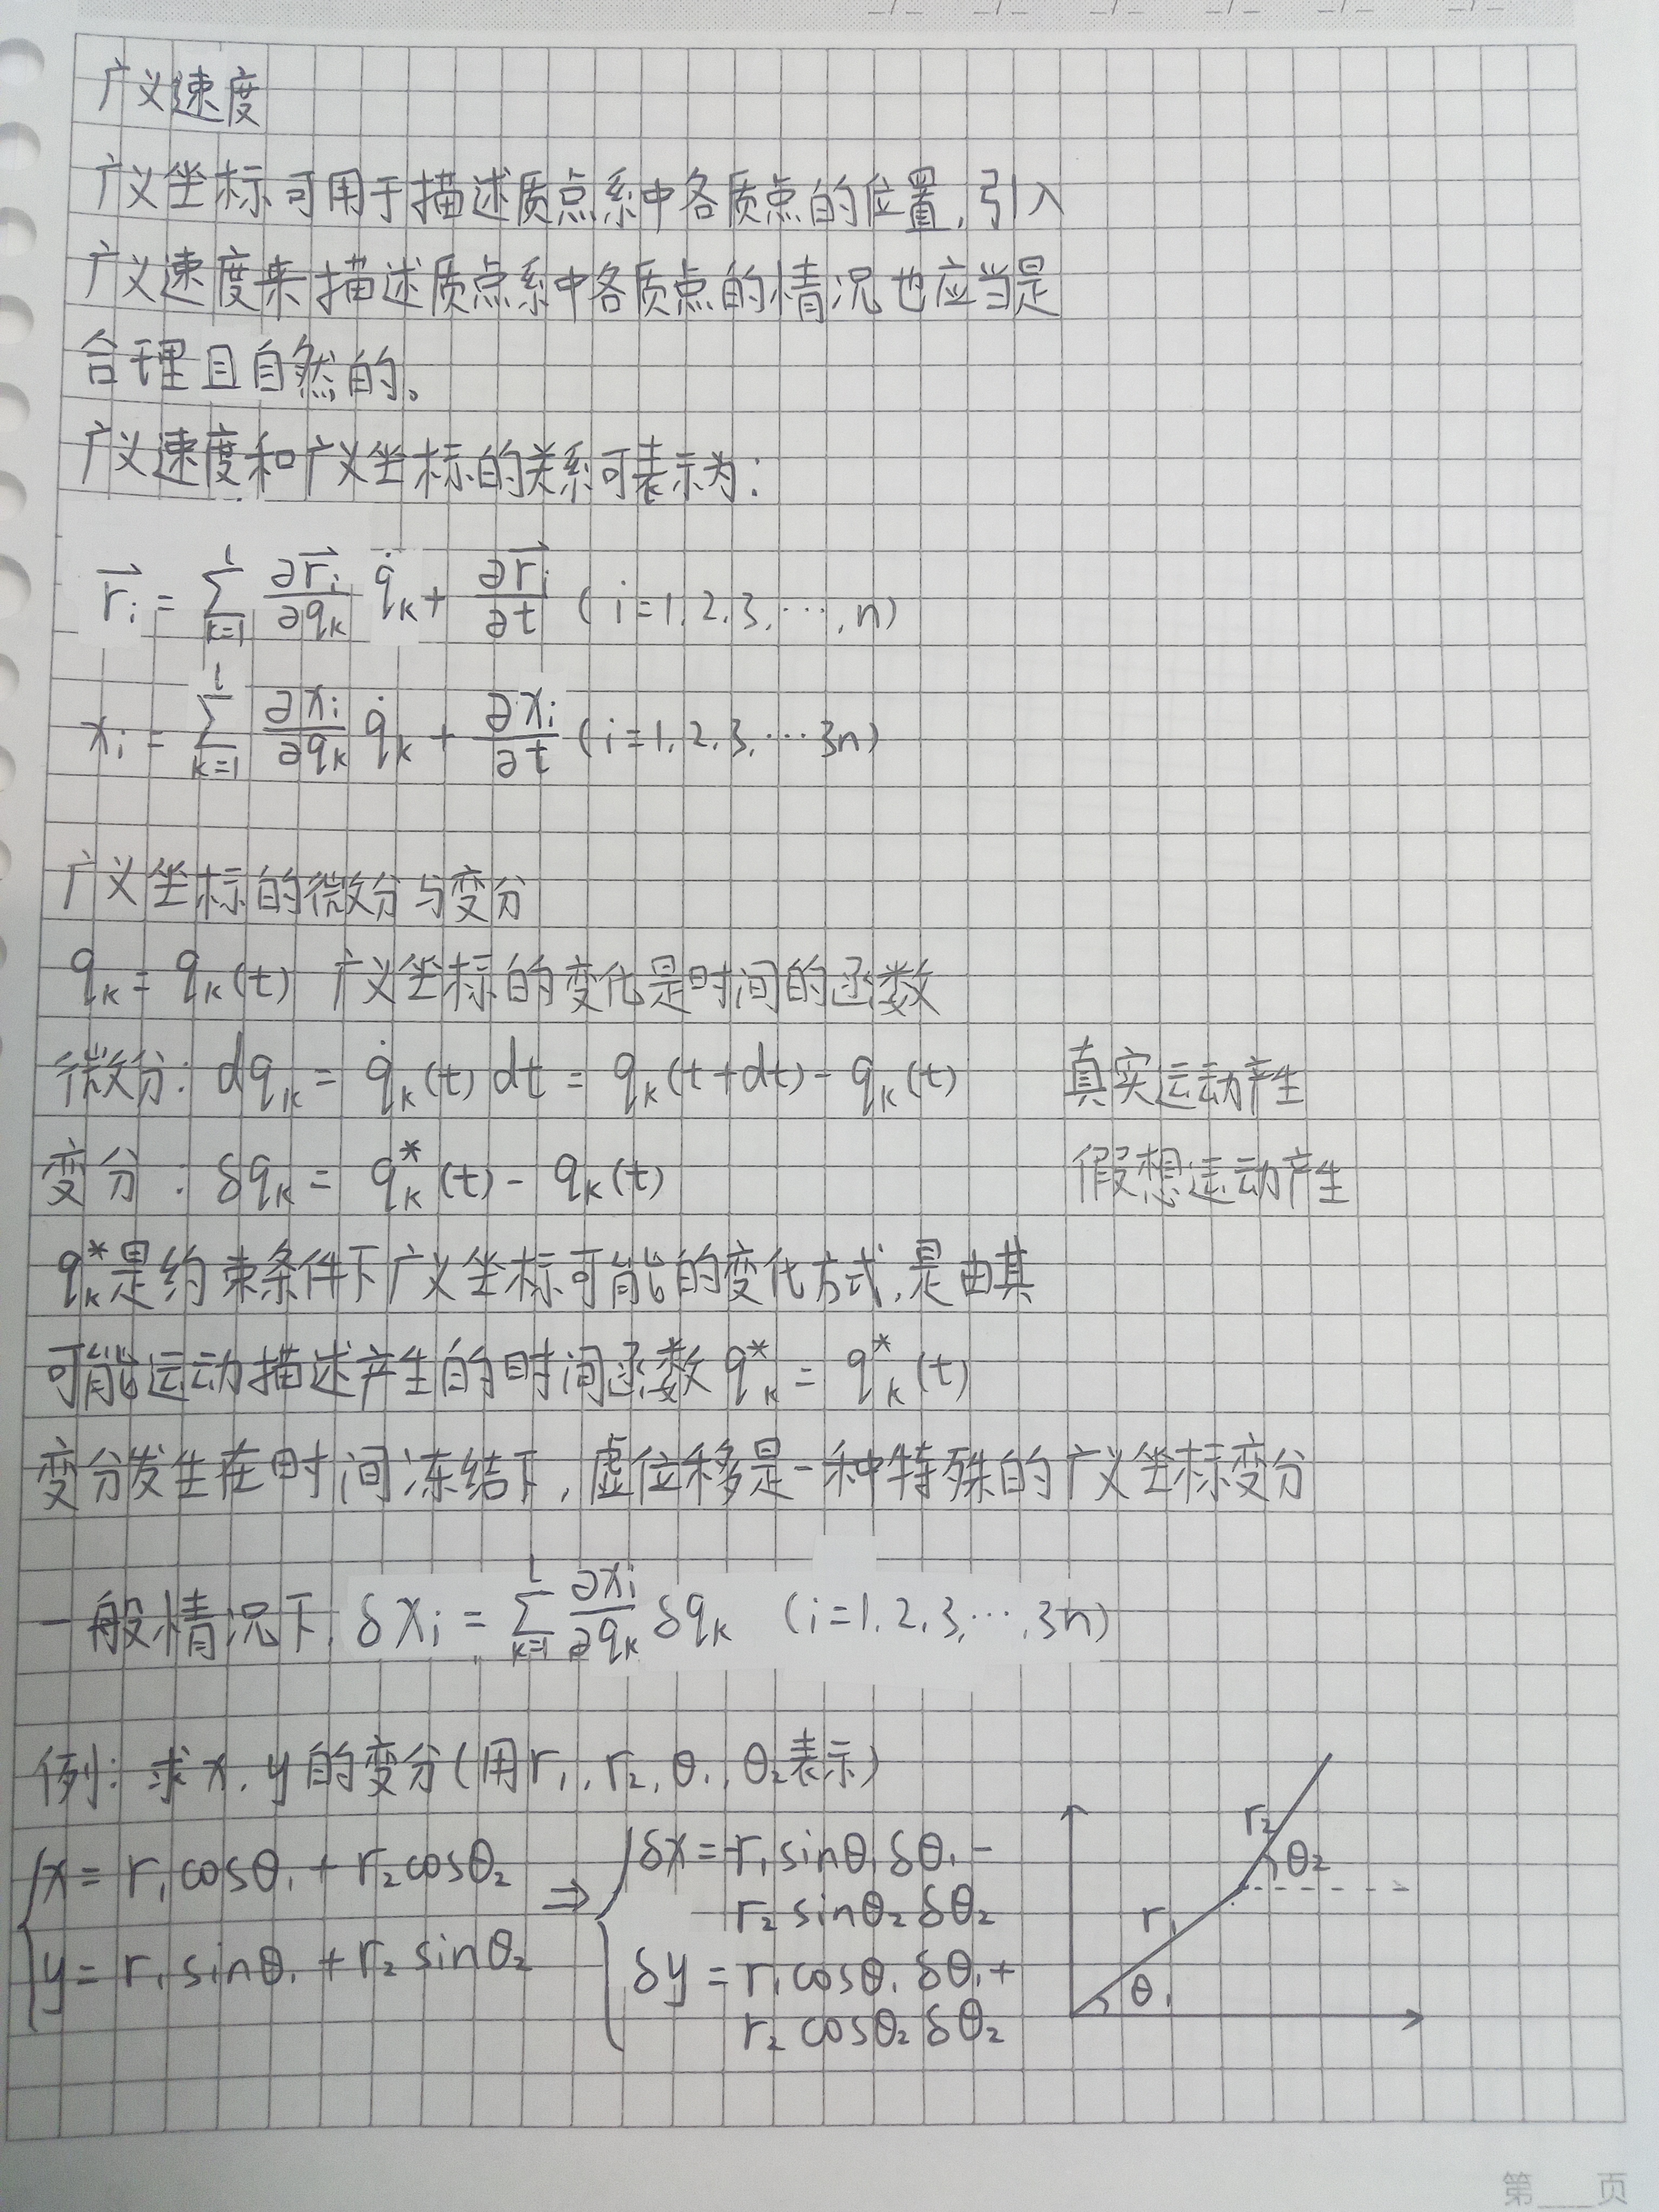 广义速度
广义坐标可用于描述质点系中各质点的位置,引入
广义速度来描述质点系中各质点的情况也应当是
合理且自然的。
广义速度和广义坐标的关系可表示为:
$\vec{r}_i = \sum_{k=1}^{l} \frac{\partial \vec{r}_i}{\partial q_k} \dot{q}_k + \frac{\partial \vec{r}_i}{\partial t}$ (i=1,2,3,⋯,n)
$x_i = \sum_{k=1}^{l} \frac{\partial x_i}{\partial q_k} \dot{q}_k + \frac{\partial x_i}{\partial t}$ (i=1,2,3,⋯3n)
广义坐标的微分与变分
$q_k = q_k(t)$ 广义坐标的变化是时间的函数
微分: $dq_k = \dot{q}_k(t)dt = q_k(t+dt) - q_k(t)$ 真实运动产生
变分: $\delta q_k = q_k^*(t) - q_k(t)$ 假想运动产生
$q_k^*$是约束条件下广义坐标可能的变化方式,是由其
可能运动描述产生的时间函数 $q_k^* = q_k^*(t)$
变分发生在时间冻结下,虚位移是一种特殊的广义坐标变分
一般情况下, $\delta x_i = \sum_{k=1}^{l} \frac{\partial x_i}{\partial q_k} \delta q_k$ (i=1,2,3,⋯,3n)
例: 求x,y的变分(用r₁,r₂,θ₁,θ₂表示)
x = r₁cosθ₁ + r₂cosθ₂
y = r₁sinθ₁ + r₂sinθ₂
⇒
δx = -r₁sinθ₁δθ₁ -
r₂sinθ₂δθ₂
δy = r₁cosθ₁δθ₁ +
r₂cosθ₂δθ₂
r₂
θ₂
r₁
θ₁
第___页